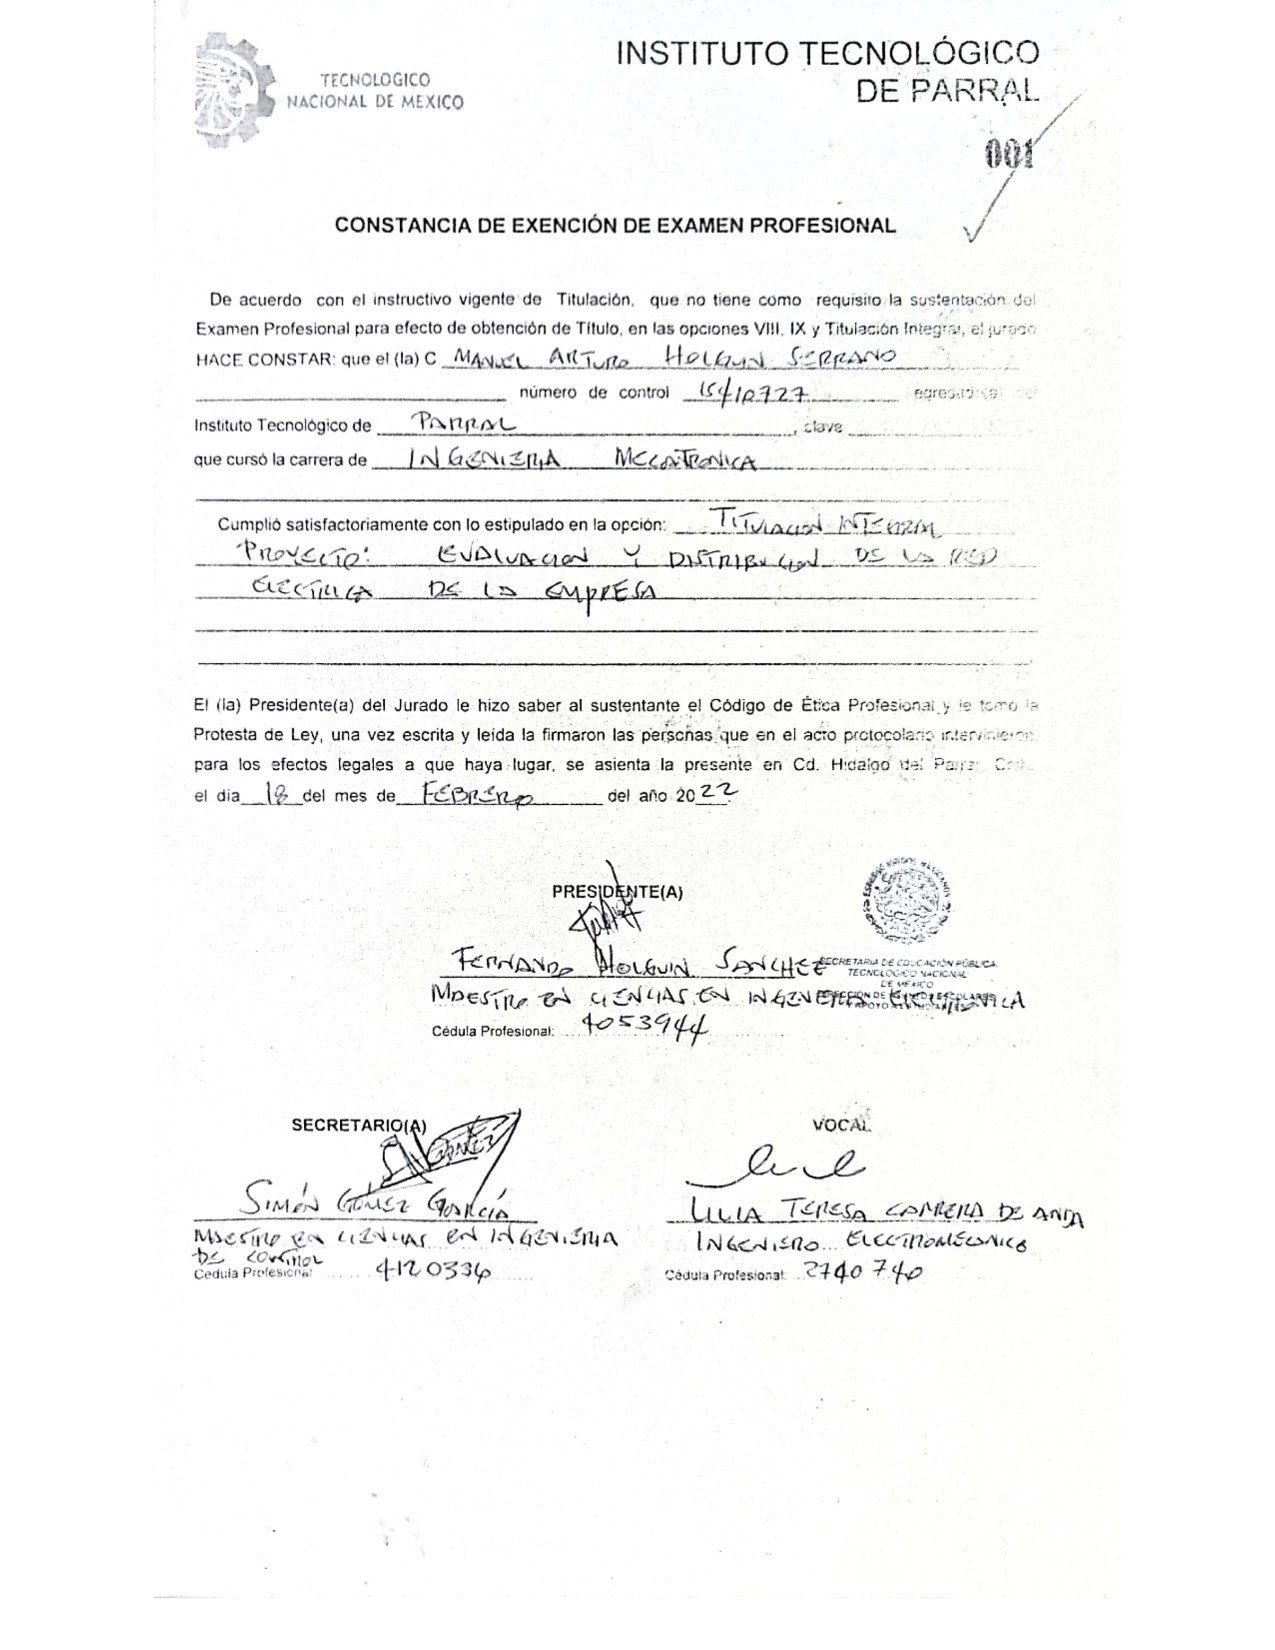 TECNOLOGICO
NACIONAL DE MEXICO
INSTITUTO TECNOLÓGICO
DE PARRAL
001
CONSTANCIA DE EXENCIÓN DE EXAMEN PROFESIONAL
De acuerdo con el instructivo vigente de Titulación, que no tiene como requisito la sustentación del
Examen Profesional para efecto de obtención de Título, en las opciones VIII, IX y Titulación Integral, el jurado
HACE CONSTAR: que el (la) C MANUEL ARTURO HOLGUIN SERRANO
número de control 15410727 egresado del
Instituto Tecnológico de PARRAL, clave
que cursó la carrera de INGENIERIA MECATRONICA
Cumplió satisfactoriamente con lo estipulado en la opción: TITULACION INTEGRAL
PROYECTO: EVALUACION Y DISTRIBUCION DE LA RED
ELECTRICA DE LA EMPRESA
El (la) Presidente(a) del Jurado le hizo saber al sustentante el Código de Ética Profesional y le tomo la
Protesta de Ley, una vez escrita y leída la firmaron las personas que en el acto protocolario intervinieron
para los efectos legales a que haya lugar, se asienta la presente en Cd. Hidalgo del Parral
el día 18 del mes de FEBRERO del año 2022
PRESIDENTE(A)
FERNANDO HOLGUIN SANCHEZ
SECRETARIA DE EDUCACIÓN PÚBLICA
TECNOLÓGICO NACIONAL
DE MÉXICO
MAESTRO EN CIENCIAS EN INGENIERIA
Cédula Profesional: 4053944
SECRETARIO(A)
SIMÓN GÓMEZ GARCÍA
MAESTRO EN CIENCIAS EN INGENIERIA
DE CONTROL
Cedula Profesional 4120336
VOCAL
LILIA TERESA CARRERA DE ANDA
INGENIERO ELECTROMECANICO
Cédula Profesional: 2740740